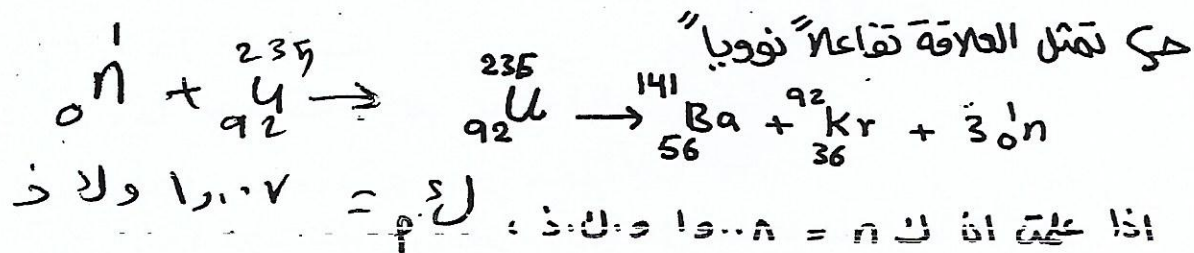 حـ تمثل العلاقة تفاعلاً نووياً
₀n¹ + ₉₂U²³⁵ → ₉₂U²³⁵ → ₅₆Ba¹⁴¹ + ₃₆Kr⁹² + 3 ₀n¹
اذا علمت ان ك n = ١,٠٠٨ و.ك.ذ ، ك p = ١,٠٠٧ و ك ذ